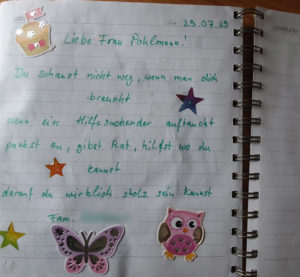 29.07.19
Liebe Frau Pohlmann!
Du schaust nicht weg, wenn man dich
braucht
wenn ein Hilfesuchender auftaucht
packst an, gibst Rat, hilfst wo du
kannst
darauf du wirklich stolz sein kannst
Fam.